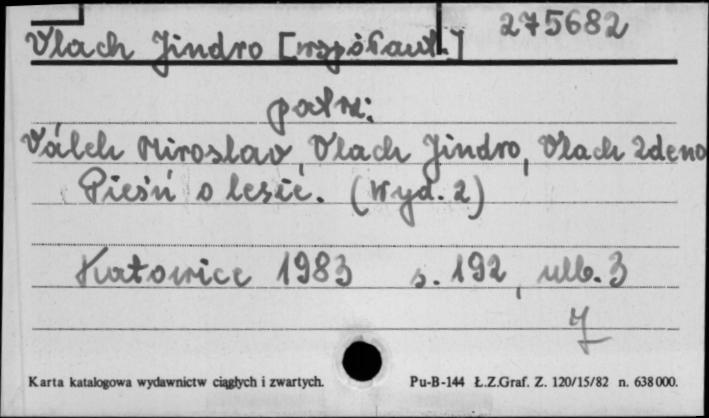 275682
Vlach Jindro [współaut.]
patrz:
Válek Miroslav, Vlach Jindro, Vlach Zdeno
Pieśń o lesie. (Wyd. 2)
Katowice 1983 s. 192, ulb. 3
Karta katalogowa wydawnictw ciągłych i zwartych. Pu-B-144 Ł.Z.Graf. Z. 120/15/82 n. 638 000.